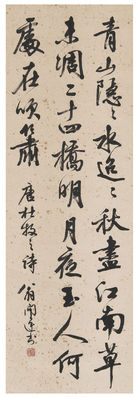 青山隱〻水迢〻秋盡江南草
未凋二十四橋明月夜玉人何
處在吹簫 唐杜牧之詩 翁闓運書